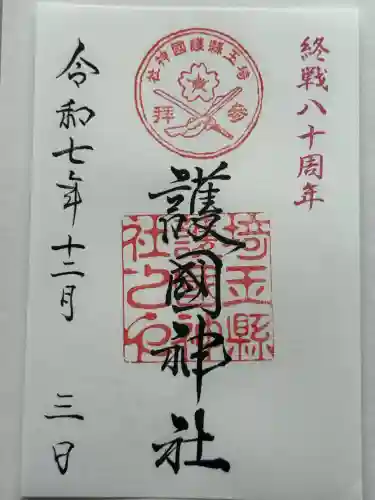 終戦八十周年
埼玉縣護國神社
参拝
護國神社
埼玉縣
護國神
社之印
令和七年十二月三日